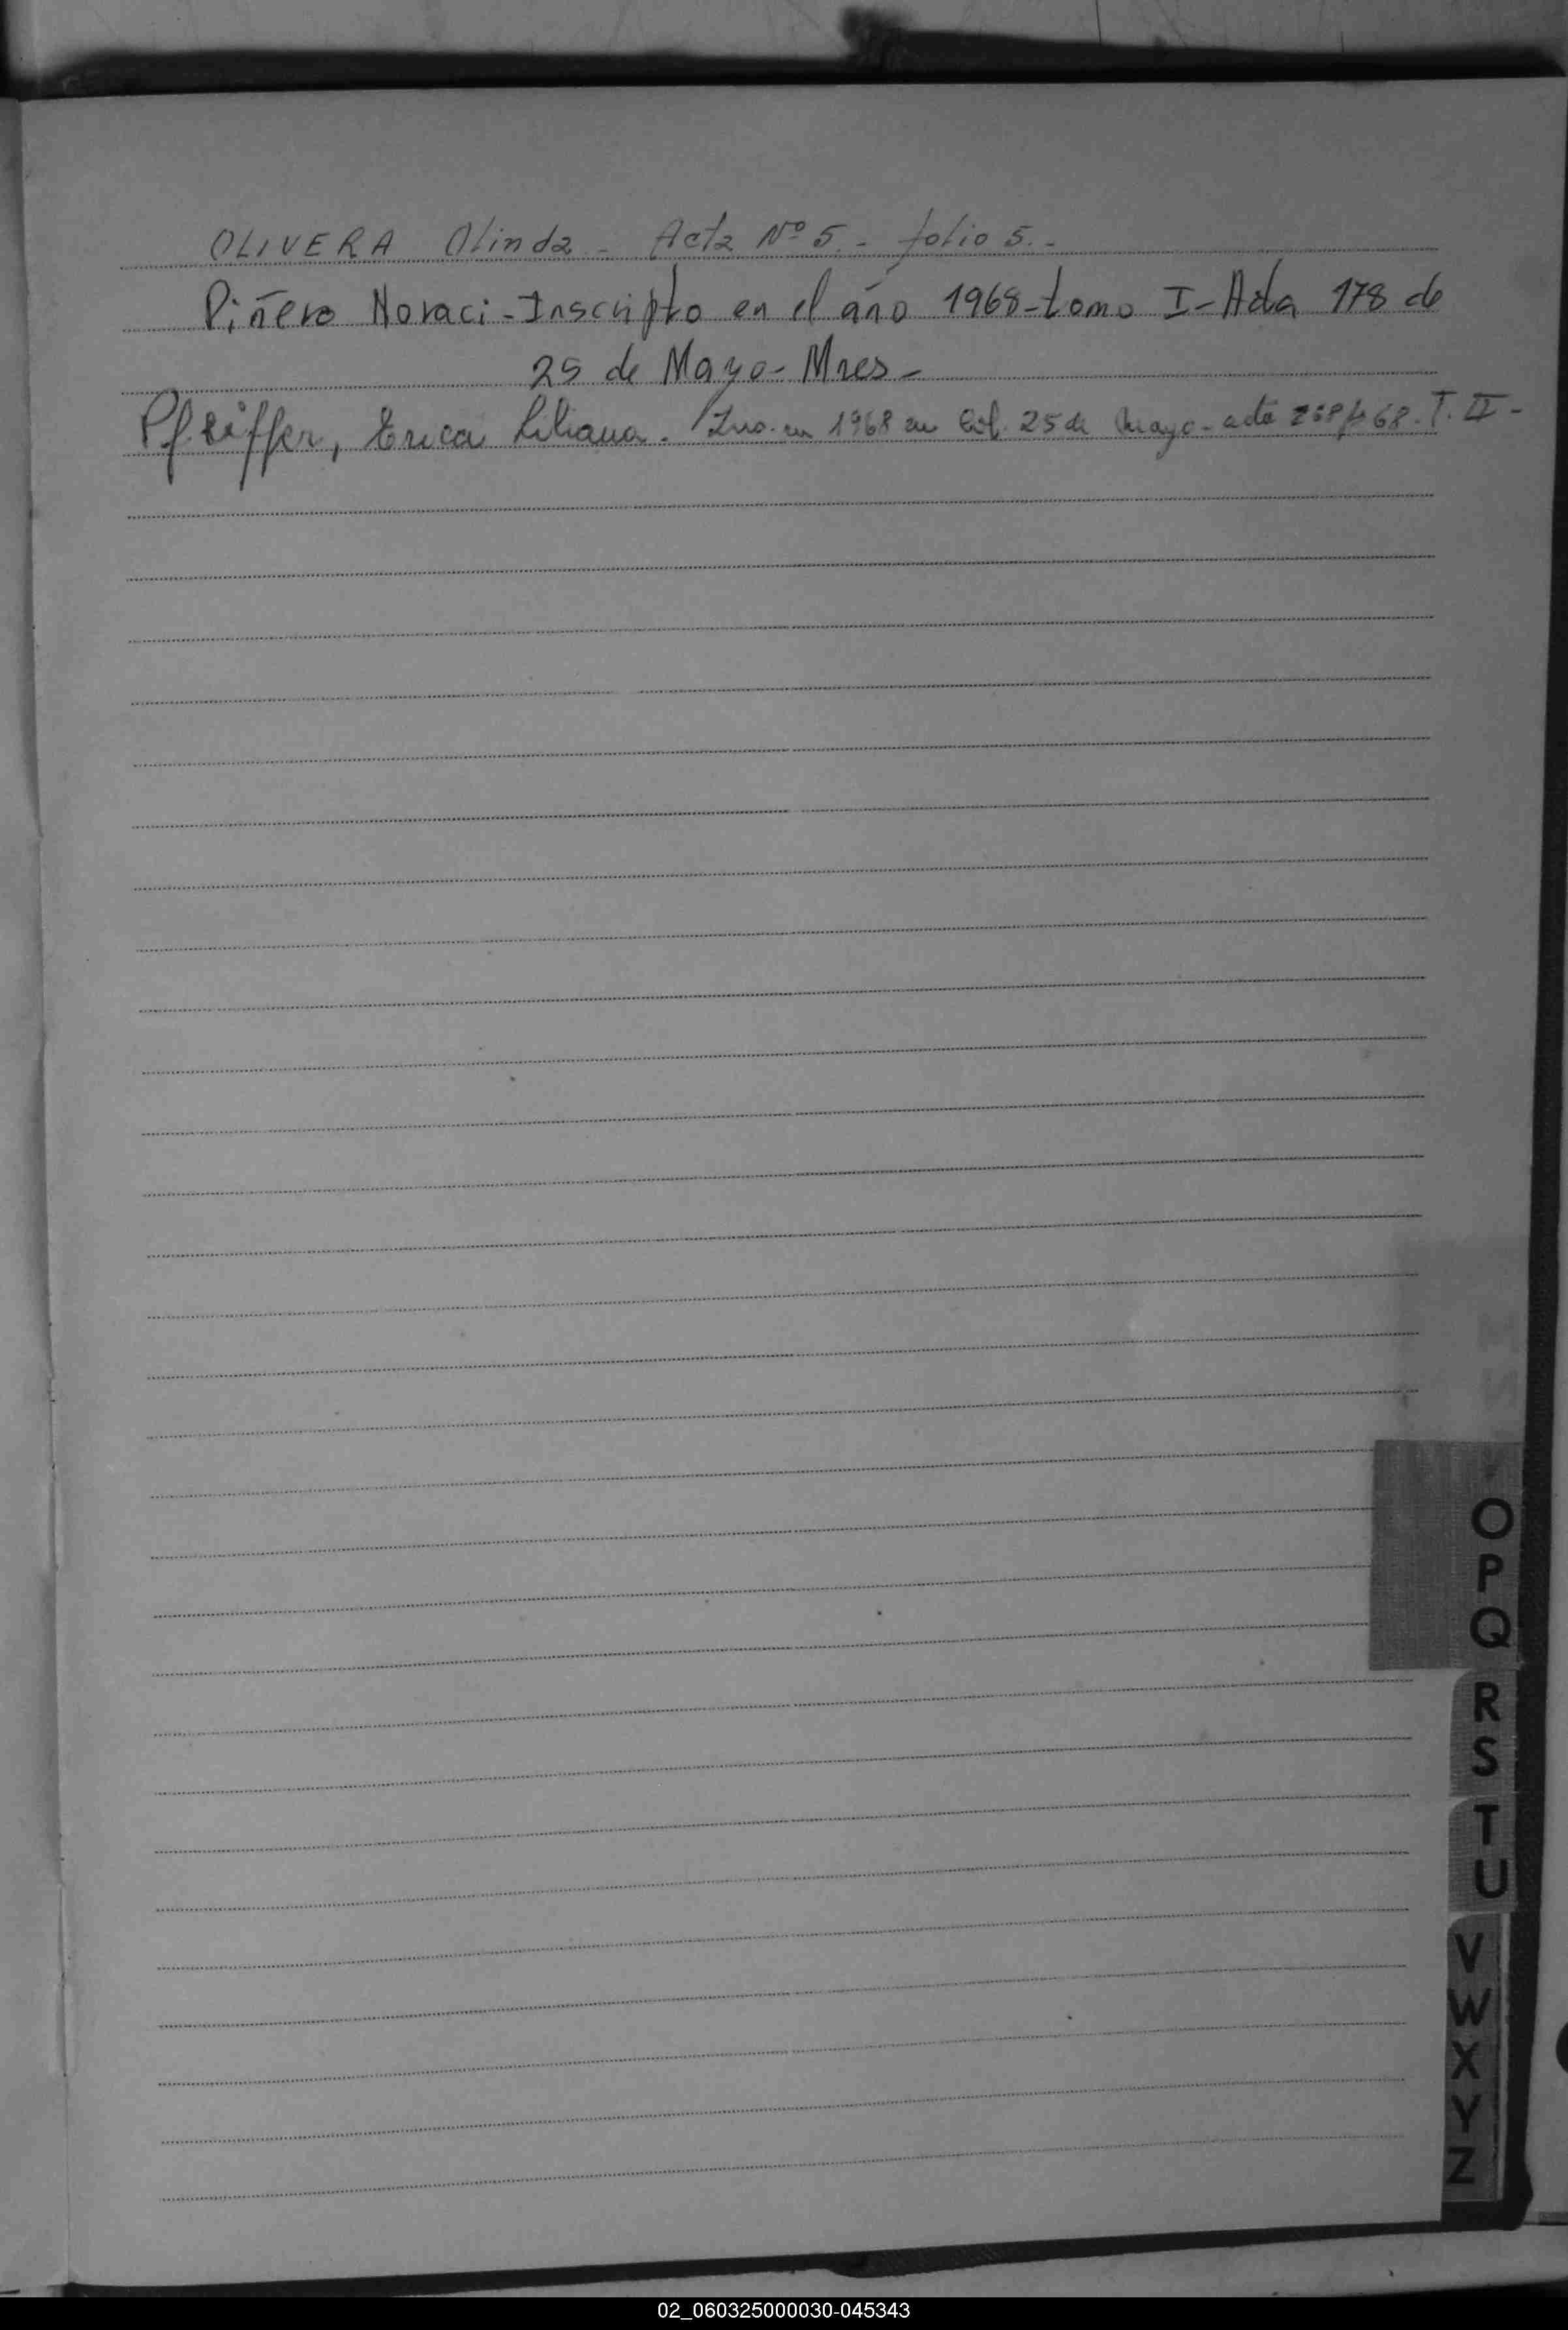 OLIVERA Olinda - Acta Nº 5. - folio 5. -
Piñero Noraci - Inscripto en el año 1968 - tomo I - Acta 178 de
25 de Mayo - Mnes -
Pfeiffer, Erica Liliana. Ins. en 1968 en 25 de Mayo - acta 68. T. II -
O
P
Q
R
S
T
U
V
W
X
Y
Z
02_060325000030-045343